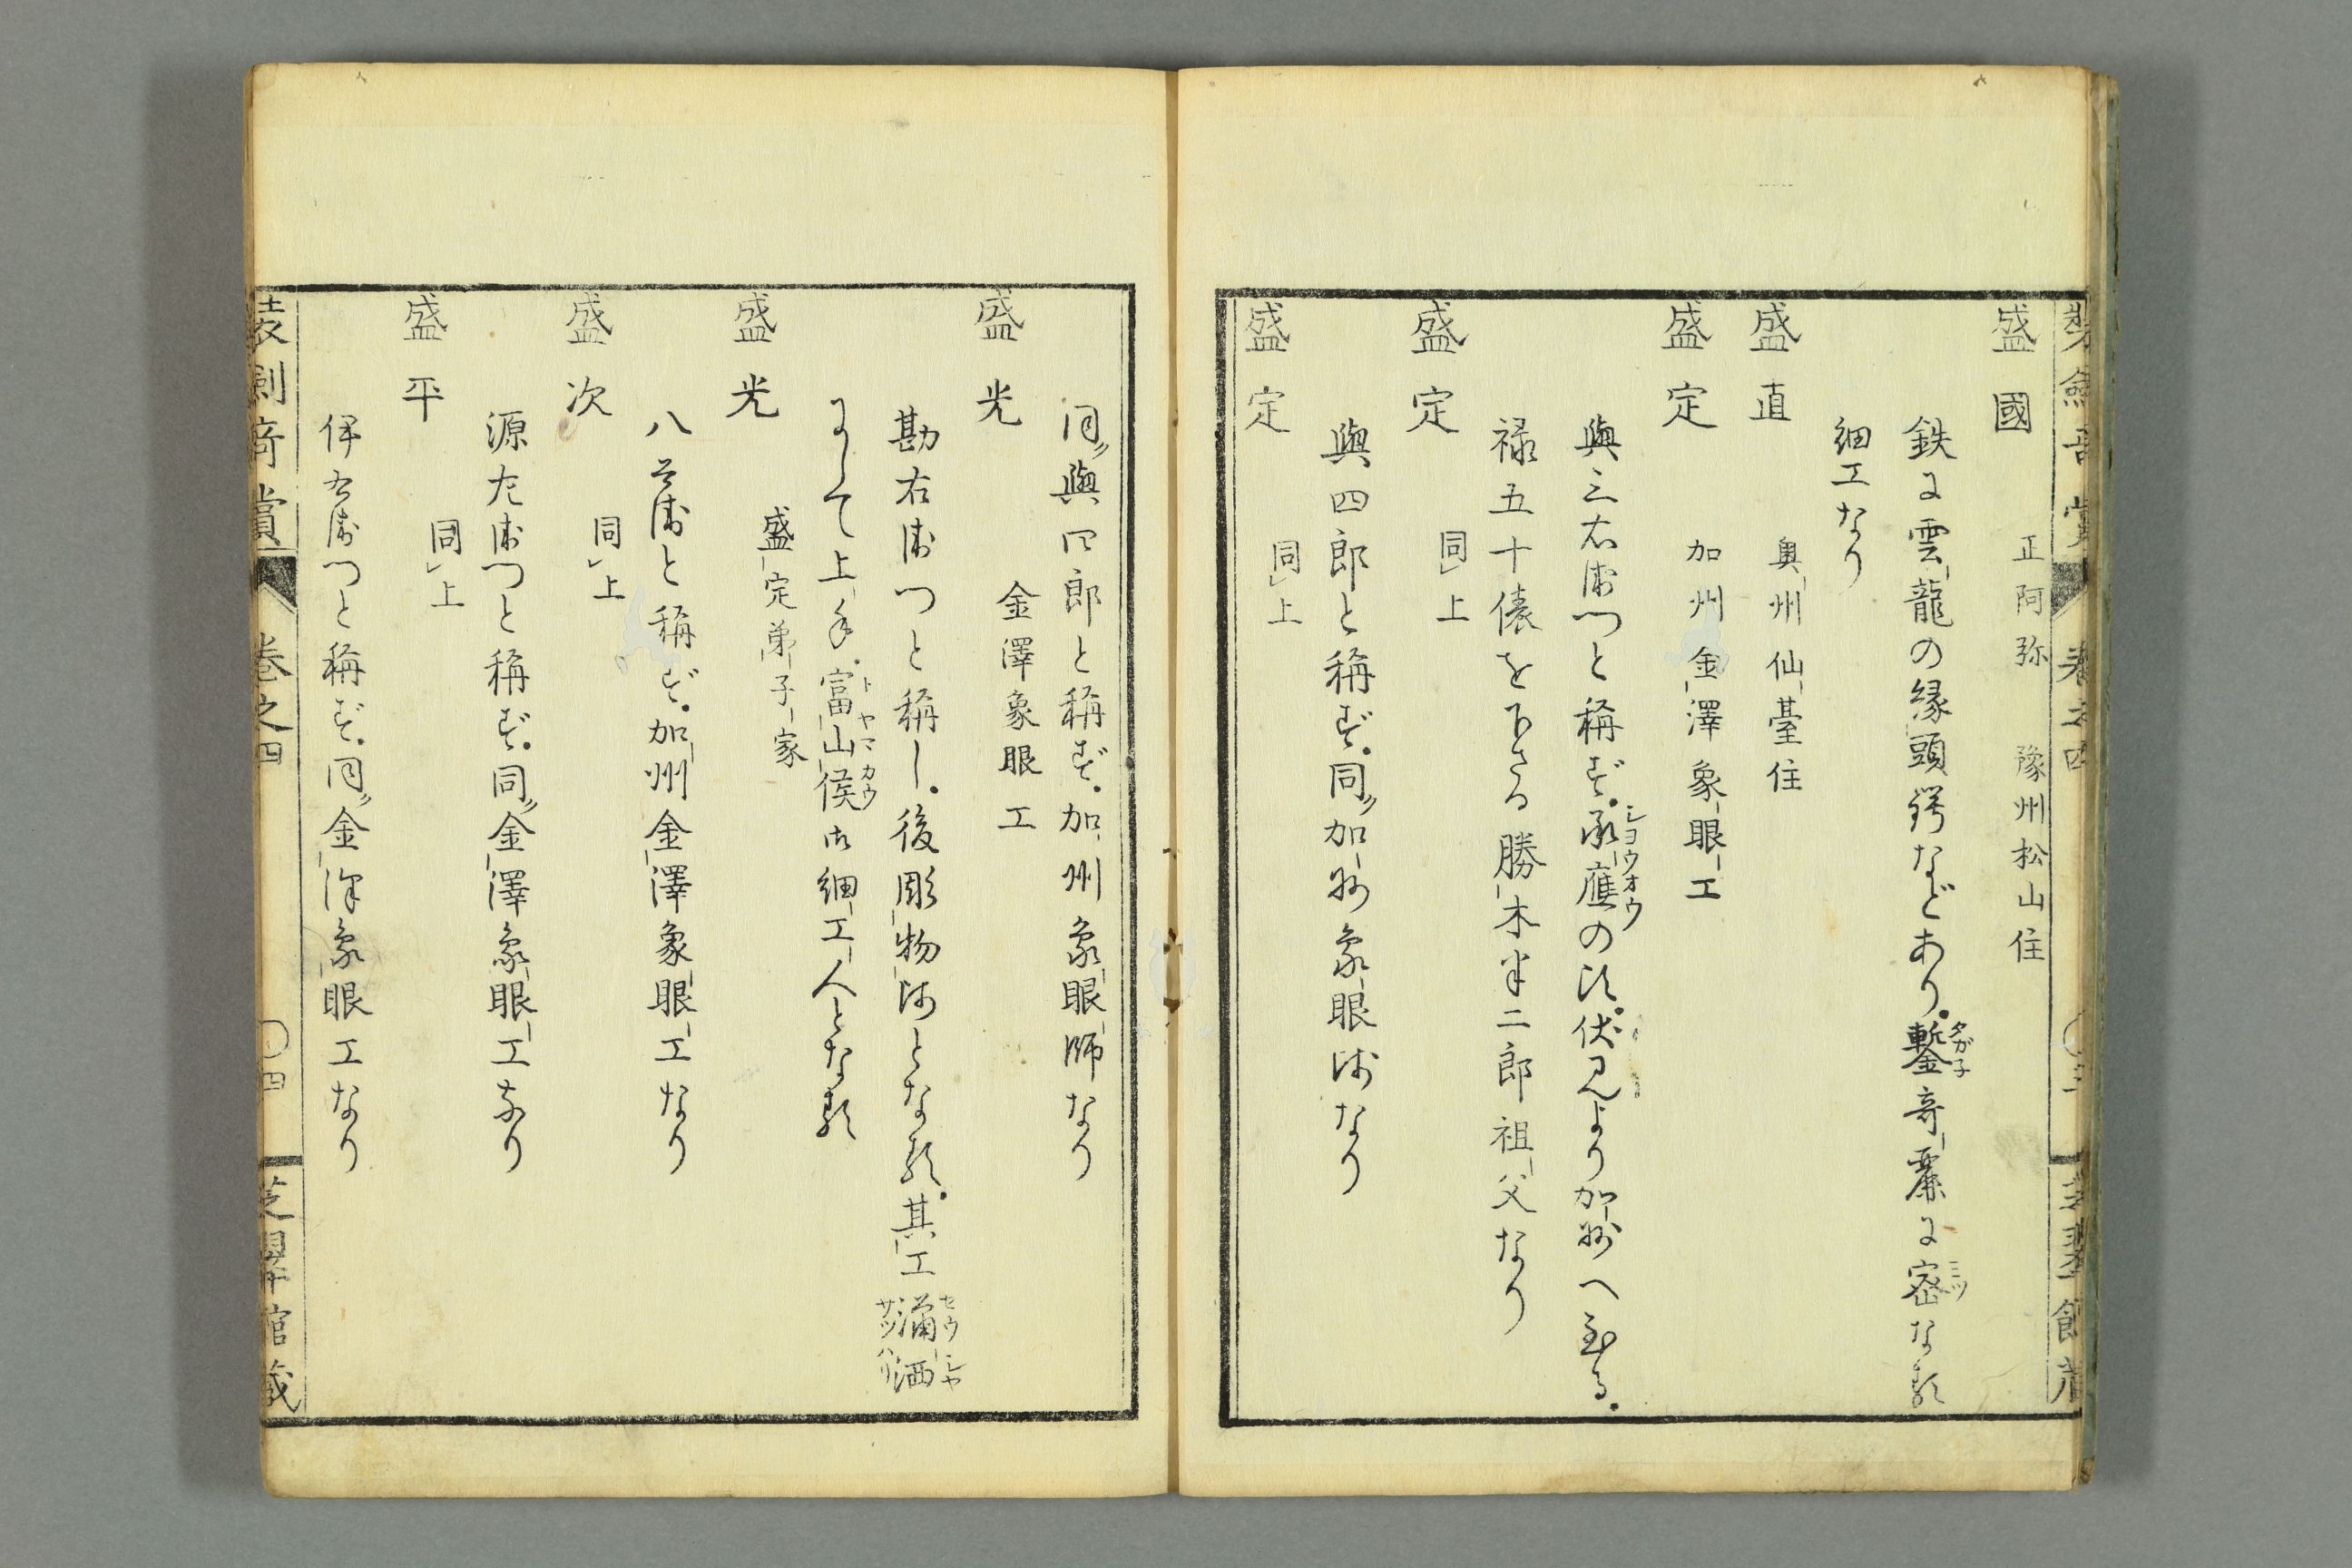 盛國 正阿弥 豫州松山住
鉄に雲龍の縁頭鍔などあり。鏨奇麗に密なる
細工なり
盛直 奥州仙臺住
盛定 加州金澤象眼工
與三右衛門と称ず。承應の比。伏見より加州へ至る。
禄五十俵を下さる勝木半二郎祖父なり
盛定 同上
與四郎と称ず。同〃加州象眼師なり
盛定 同上
同〃與四郎と称ず。加州象眼師なり
盛光 金澤象眼工
勘右衛門と称し。後彫物師となる。其工瀟洒
にして上手。富山侯御細工人となる
盛光 盛定弟子家
八兵衛と称ず。加州金澤象眼工なり
盛次 同上
源左衛門と称ず。同〃金澤象眼工なり
盛平 同上
伊右衛門と称ず。同〃金沢象眼工なり
装劍奇賞 巻之四 〇四 芝翠館蔵